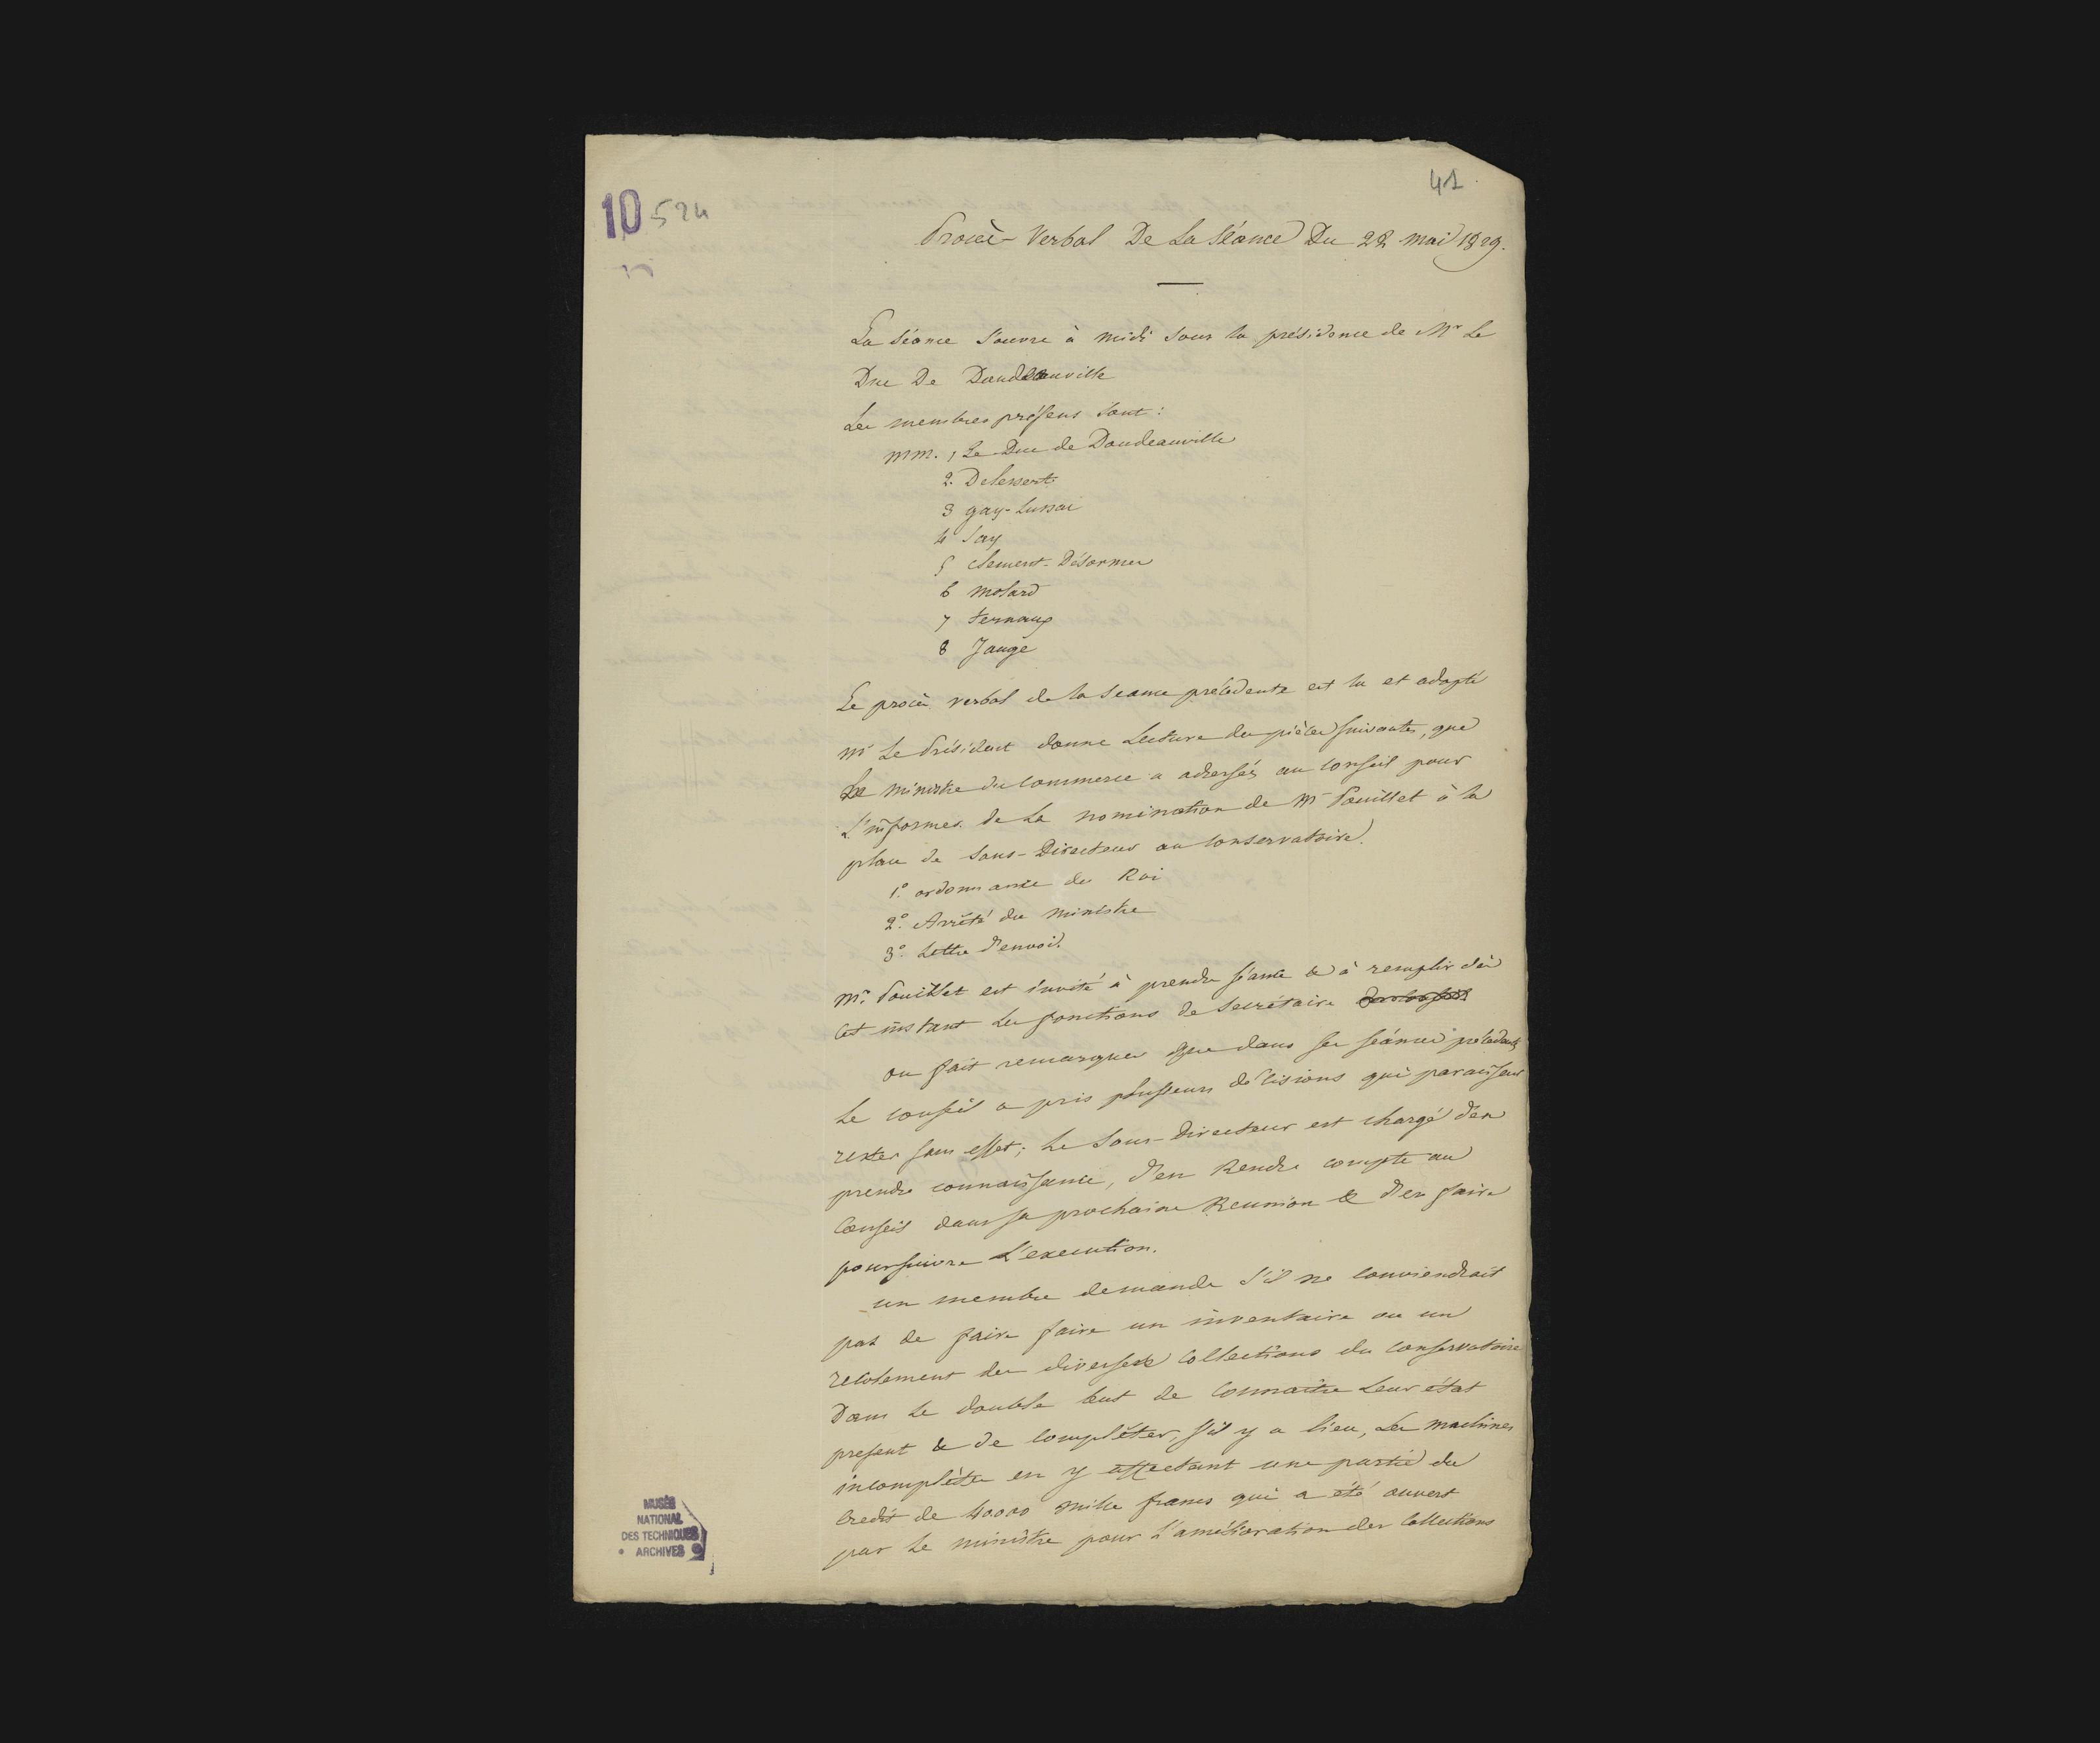 41
10 524
Procès-Verbal De La Séance Du 28 mai 1829.
La séance s'ouvre à midi sous la présidence de Mr Le
Duc De Doudeauville
Les membres présens sont :
MM. 1 Le Duc de Doudeauville
2. Delessert
3 gay-Lussac
4 Say
5 Clement-Désormes
6 Molard
7 ternaux
8 Jauge
Le procès verbal de la séance précédente est lu et adopté
Mr Le Président donne Lecture des pièces suivantes, que
Le ministre du Commerce a adressées au Conseil pour
L'informer de La nomination de Mr Pouillet à la
place de Sous-Directeur au Conservatoire.
1.° ordonnance du Roi
2.° Arrêté du Ministre
3.° Lettre d'envoi.
Mr. Pouillet est invité à prendre séance & à remplir dès
cet instant Les fonctions de Secrétaire
on fait remarquer que dans ses séances précédentes
Le Conseil a pris plusieurs décisions qui paraissent
rester sans effet ; Le Sous-Directeur est chargé d'en
prendre connaissance, d'en Rendre compte au
Conseil dans sa prochaine Reunion & d'en faire
poursuivre L'execution.
un membre demande s'il ne conviendrait
pas de faire faire un inventaire ou un
recolement des diverses collections du conservatoire
Dans le double but de connaitre Leur état
present & de compléter, s'il y a lieu, Les machines
incomplètes en y affectant une partie du
credit de 40.000 mille francs qui a été ouvert
par Le ministre pour L'amélioration des Collections
MUSÉE
NATIONAL
DES TECHNIQUES
• ARCHIVES •